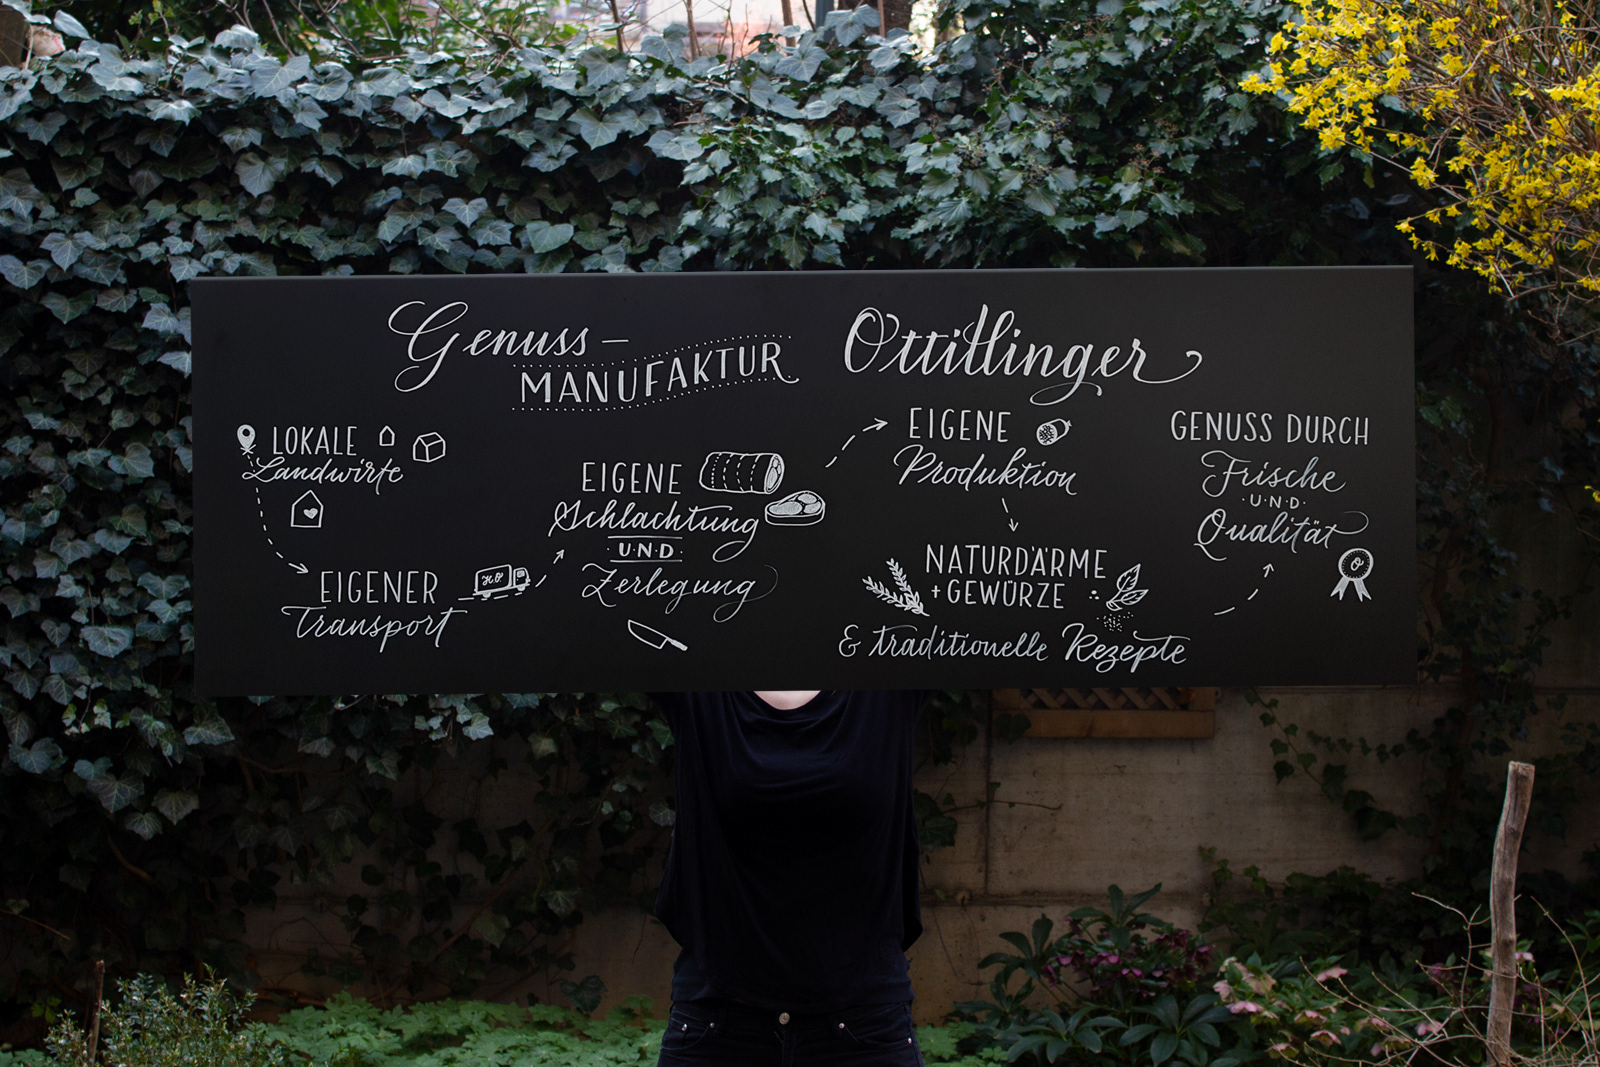 Genuss-
MANUFAKTUR
Ottillinger
LOKALE
Landwirte
EIGENER
Transport
HO
EIGENE
Schlachtung
·U·N·D·
Zerlegung
EIGENE
Produktion
NATURDÄRME
+ GEWÜRZE
& traditionelle Rezepte
GENUSS DURCH
Frische
·U·N·D·
Qualität
O